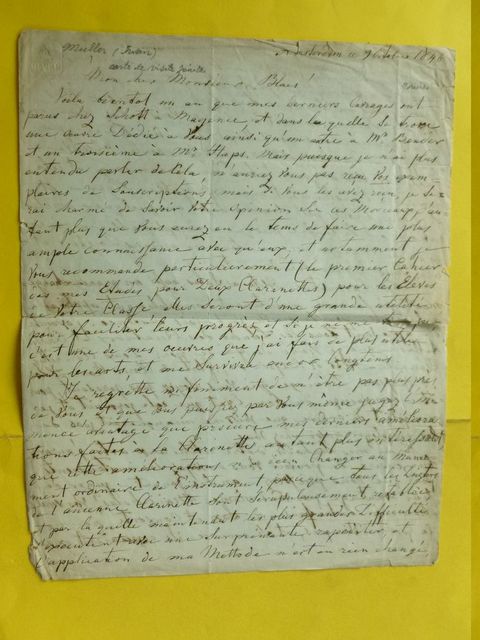 Muller (Iwan)
Amsterdam ce 9 Octobre 1846
carte de visite jointe
Mon cher Monsieur Blaes!
Voila bientot un an que mes derniers ouvrages ont
parus chez Schott a Mayence et dans laquelle se trouve
une œuvre Dediée a Vous ainsi qu'un autre à Mr Bender
et un troisième à Mr Staps. Mais puisque je n'ai plus
entendu parler de cela, n'auriez Vous pas reçu Vos exem
plaires de Souscriptions, mais si Vous les avez reçu, je Se
rai charmé de Savoir Votre Opinion Sur ces Morceaux, d'au
tant plus que Vous aurez eu le tems de faire une plus
ample connaissance avec qu'eux, et notamment je
Vous recommande particulierement (le premier Cahier
de mes Etudes pour Deux Clarinettes) pour les Eleves
de Votre Classe elles Seront d'une grande utilité
pour faciliter leurs progrez et si je ne me
c'est une de mes oeuvres que j'ai fais de plus utile
pour les arts et me Survivra encore longtems
Je regrette infiniment de n'être pas plus près
de Vous et que Vous puissiez par Vous même jugez
avantage que procure mes derniers améliora
tions faites a la Clarinette autant plus
que cette améliorations rien Changer au Manie
ment ordinaire de l'instrument puisque tous les
de l'ancienne Clarinette Sont Scrupuleusement
et par la quelle maintenant les plus grandes difficultés
s'executent avec une Surprenante rapidité, et
l'application de ma Methode n'ont en rien changé